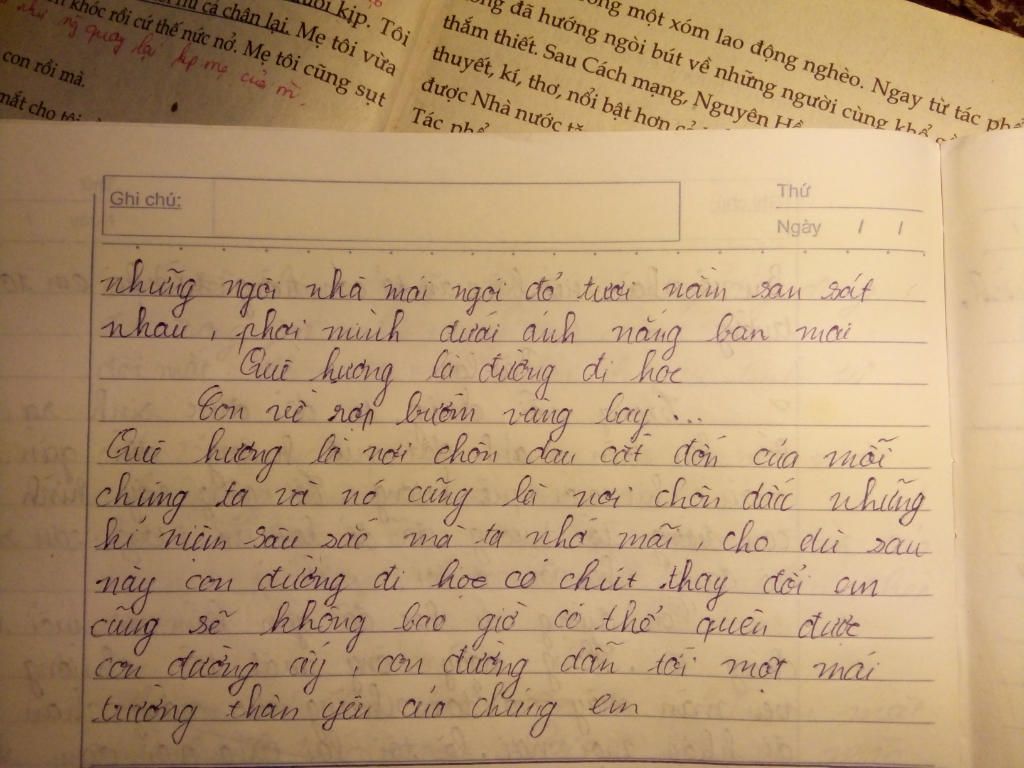 rồi kịp. Tôi
khóc rồi cứ thế nức nở. Mẹ tôi vừa
mẹ của m.
con rồi mà. Mẹ tôi cũng sụt
mắt cho tôi
một xóm lao động nghèo. Ngay từ tác
đã hướng ngòi bút về những người cùng khổ
thắm thiết. Sau Cách mạng, Nguyên
thuyết, kí, thơ, nổi bật hơn
được Nhà nước
Tác
Ghi chú:
Thứ
Ngày / /
những ngôi nhà mái ngói đỏ tươi nằm san sát
nhau, phơi mình dưới ánh nắng ban mai
Quê hương là đường đi học
Con về rợp bướm vàng bay...
Quê hương là nơi chôn dau cắt đốn của mỗi
chúng ta và nó cũng là nơi chôn dấu những
kỉ niệm sâu sắc mà ta nhớ mãi, cho dù sau
này con đường đi học có chút thay đổi em
cũng sẽ không bao giờ có thể quên được
con đường ấy, con đường dẫn tới một mái
trường thân yêu của chúng em